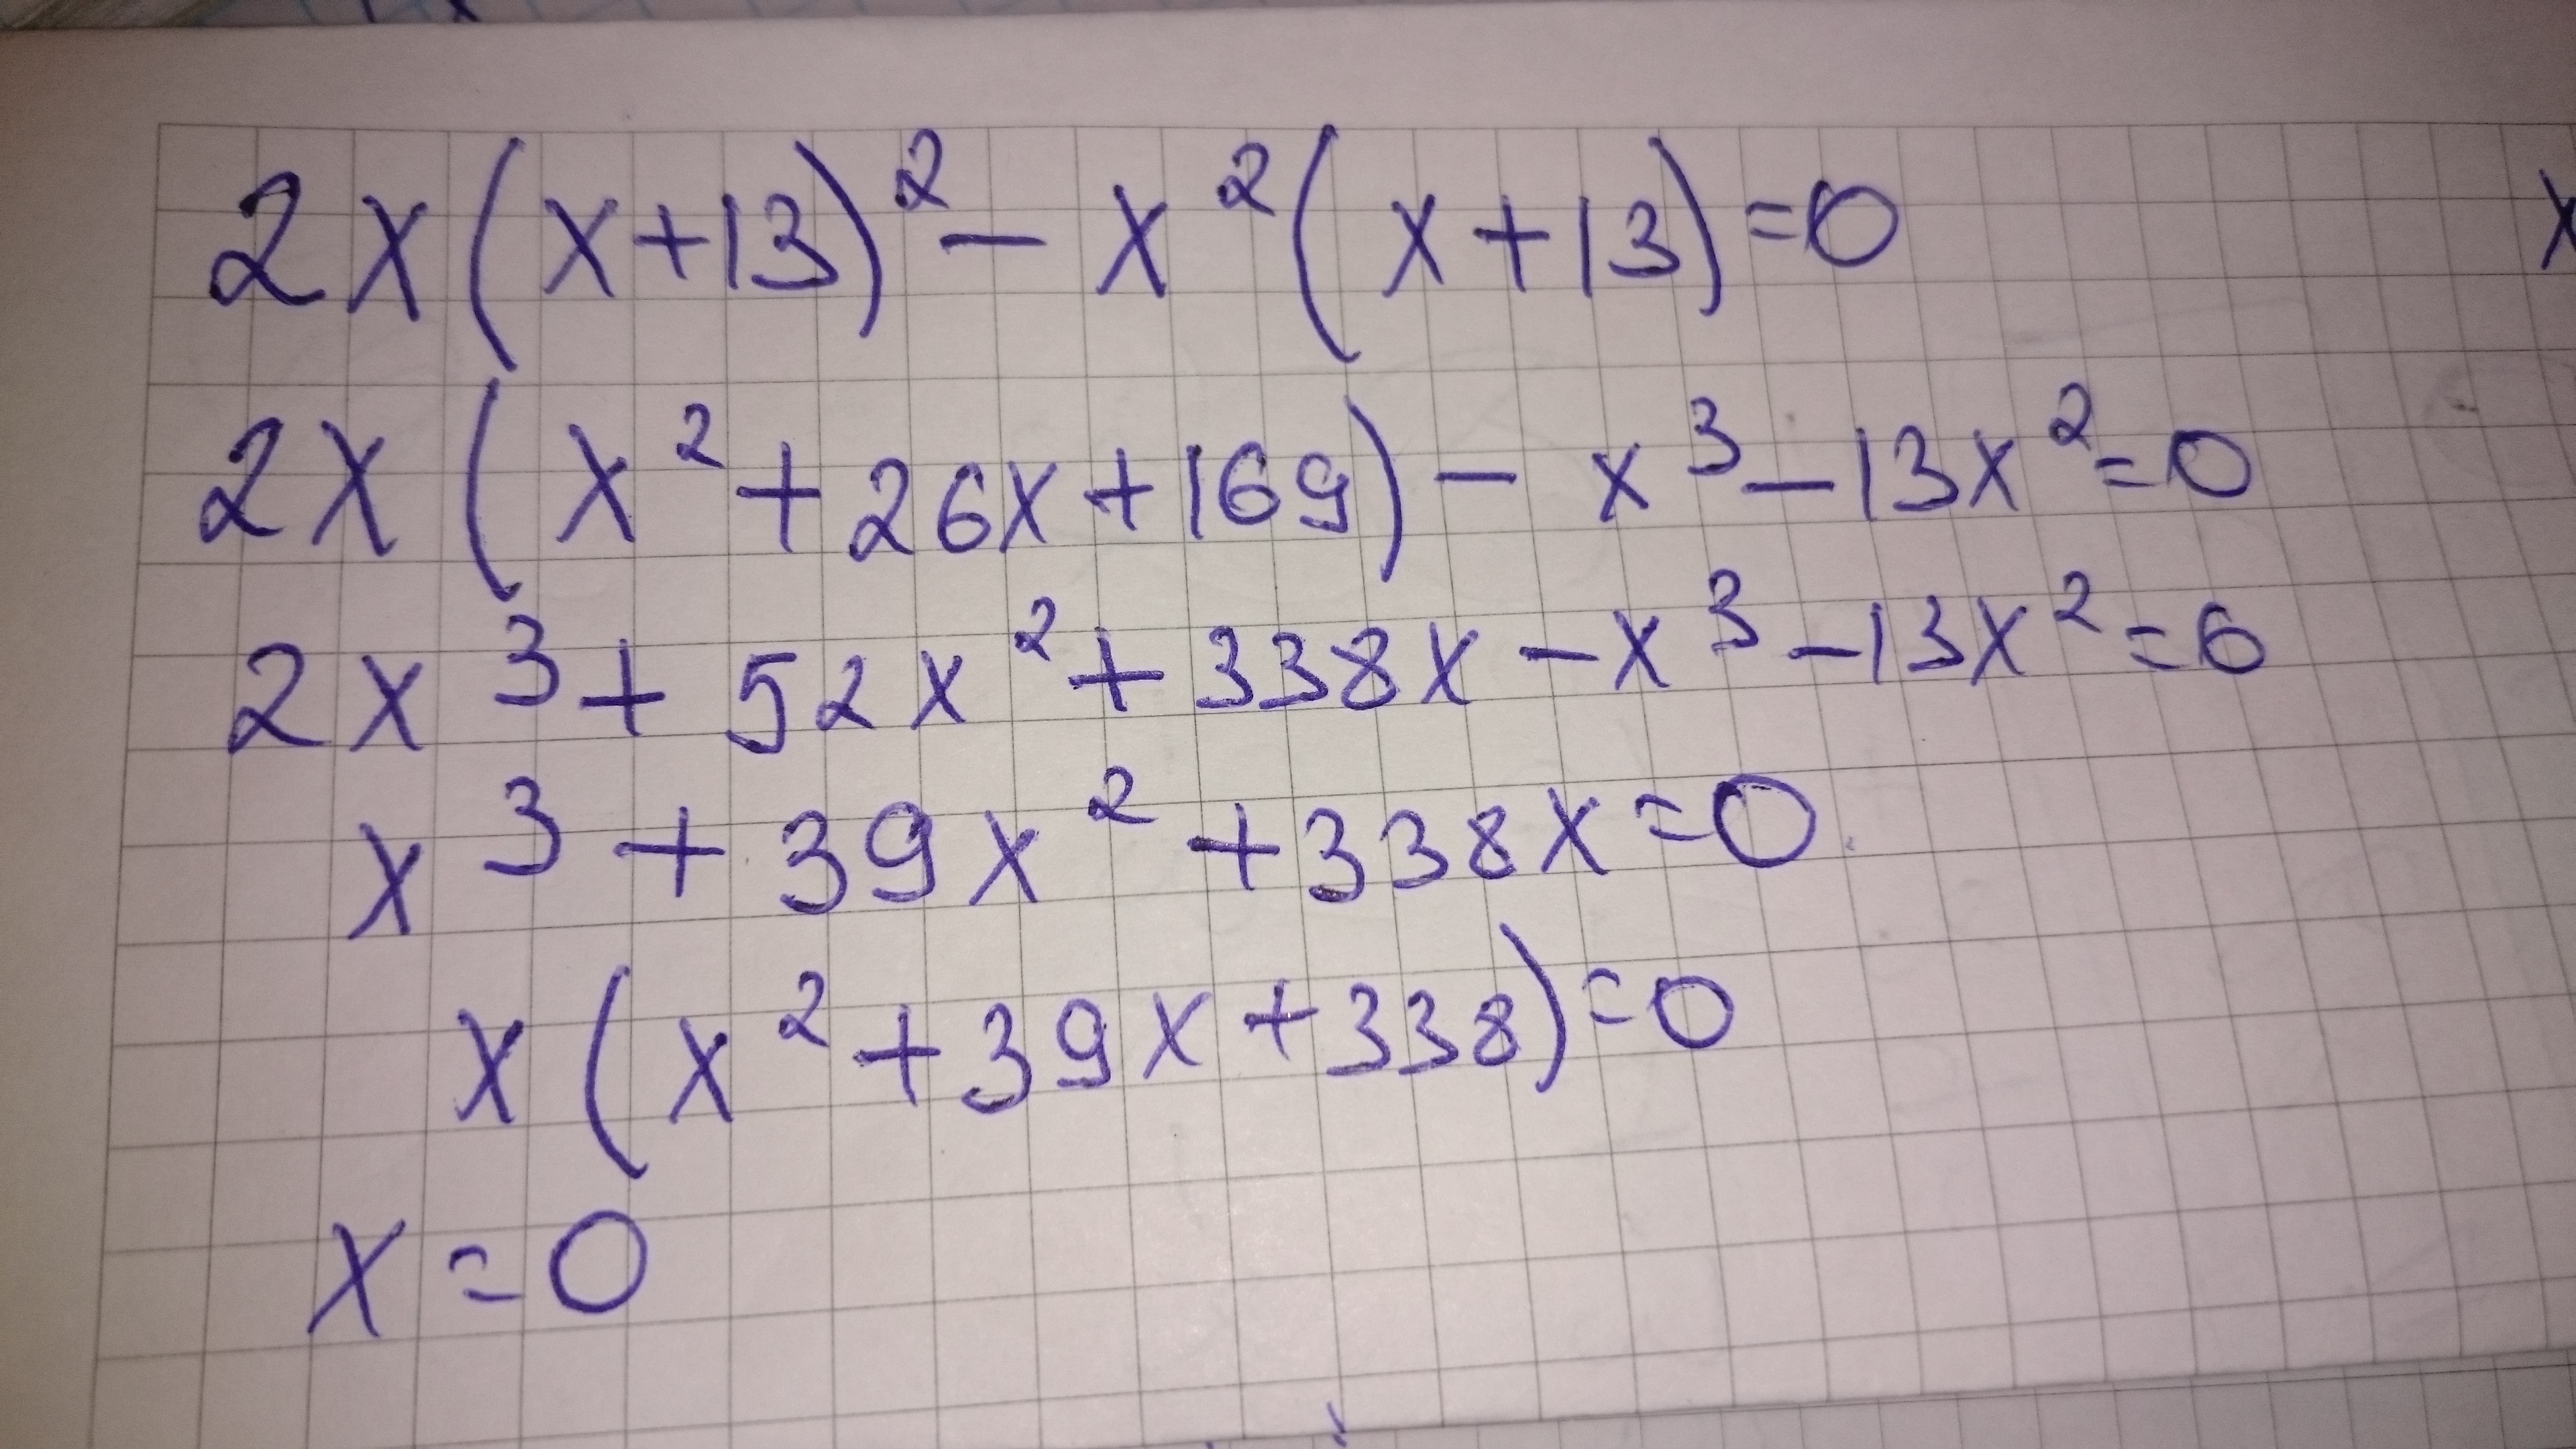 2x(x+13)² - x²(x+13)=0
2x(x²+26x+169) - x³-13x²=0
2x³+52x²+338x-x³-13x²=0
x³+39x²+338x=0
x(x²+39x+338)=0
x=0